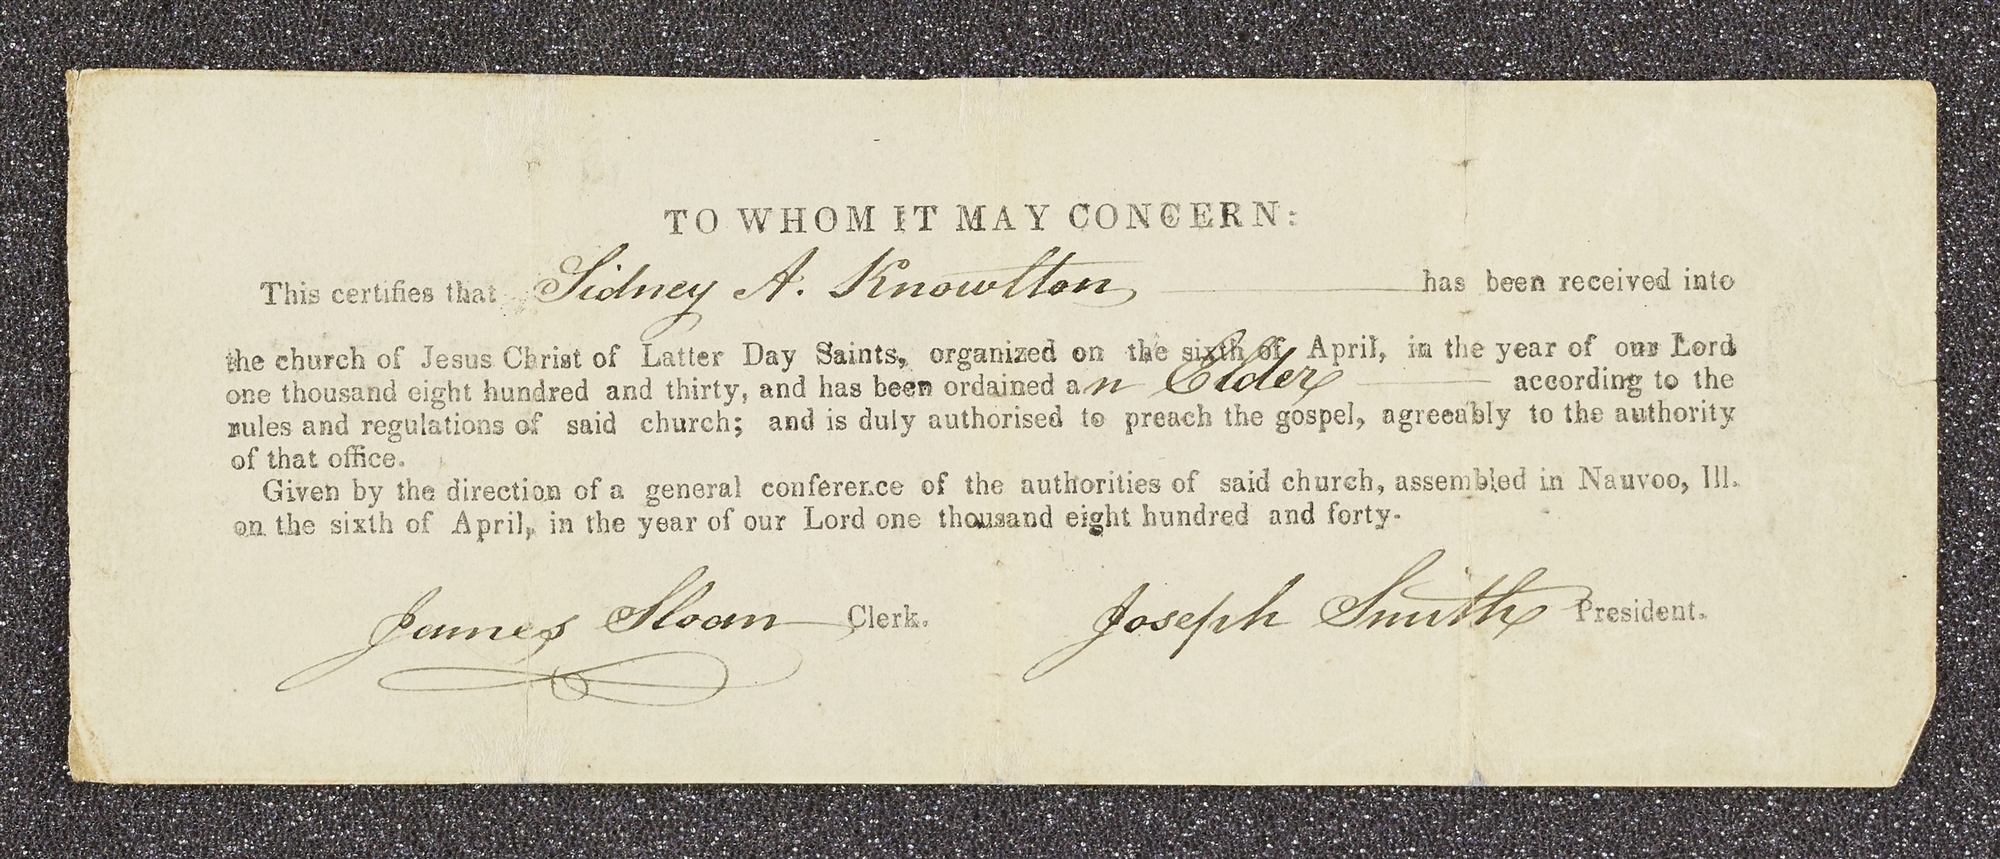 TO WHOM IT MAY CONCERN:
This certifies that Sidney A. Knowlton has been received into
the church of Jesus Christ of Latter Day Saints, organized on the sixth of April, in the year of our Lord
one thousand eight hundred and thirty, and has been ordained an Elder according to the
rules and regulations of said church; and is duly authorised to preach the gospel, agreeably to the authority
of that office.
Given by the direction of a general conference of the authorities of said church, assembled in Nauvoo, Ill.
on the sixth of April, in the year of our Lord one thousand eight hundred and forty.
James Sloan Clerk. Joseph Smith President.